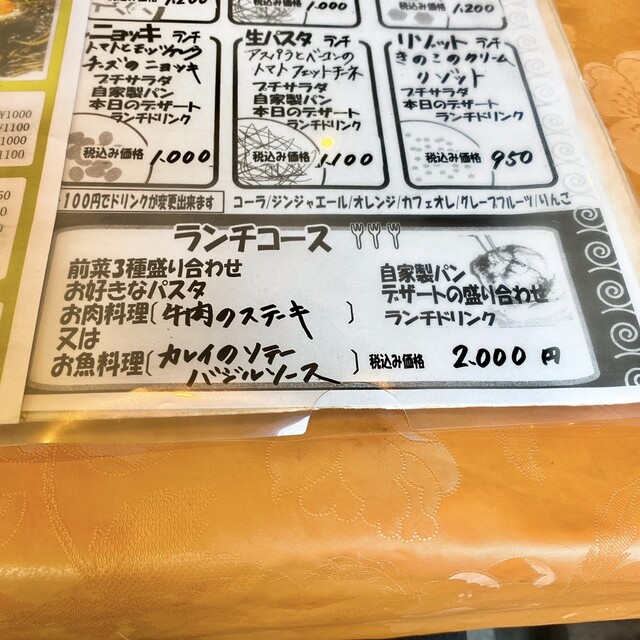 税込み価格 1,200
1,000
1,200
ニョッキ ランチ
トマトとモッツァレラ
チーズのニョッキ
プチサラダ
自家製パン
本日のデザート
ランチドリンク
税込み価格 1,000
生パスタ ランチ
アスパラとベーコンの
トマトフェットチーネ
プチサラダ
自家製パン
本日のデザート
ランチドリンク
税込み価格 1,100
リゾット ランチ
きのこのクリーム
リゾット
プチサラダ
本日のデザート
ランチドリンク
税込み価格 950
¥1000
¥1100
1000
1100
100円でドリンクが変更出来ます
コーラ/ジンジャエール/オレンジ/カフェオレ/グレープフルーツ/りんご
ランチコース
前菜3種盛り合わせ
お好きなパスタ
お肉料理〔牛肉のステーキ〕
又は
お魚料理〔カレイのソテー
バジルソース〕
自家製パン
デザートの盛り合わせ
ランチドリンク
税込み価格 2,000 円